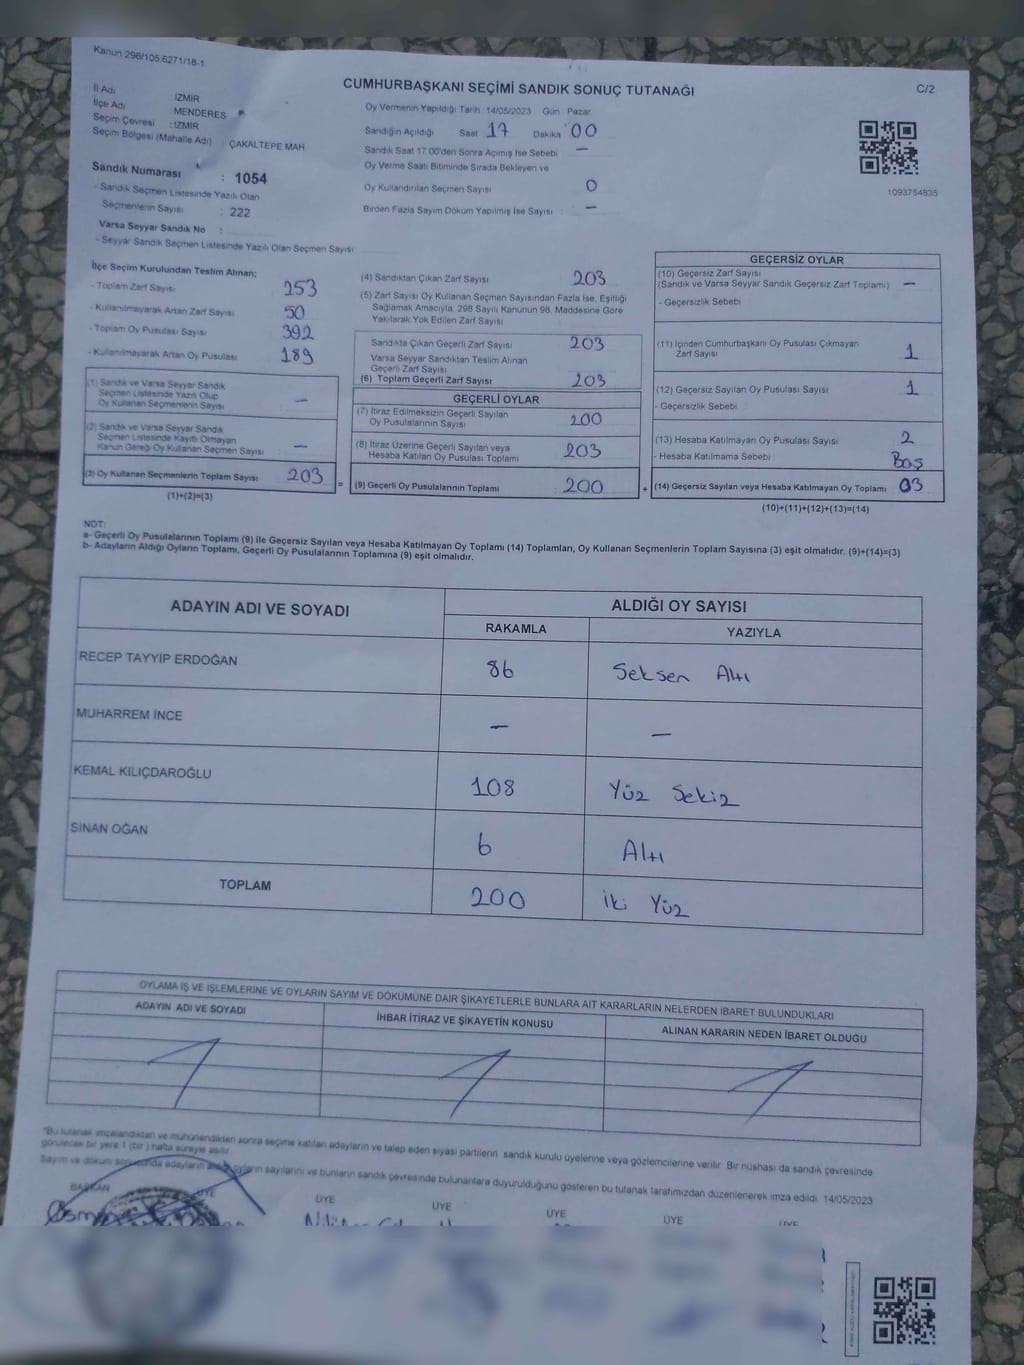 Kanun.298/105.6271/18-1
CUMHURBAŞKANI SEÇİMİ SANDIK SONUÇ TUTANAĞI
C/2
İl Adı İZMİR
İlçe Adı MENDERES
Seçim Çevresi : İZMİR
Seçim Bölgesi (Mahalle Adı) : ÇAKALTEPE MAH
Sandık Numarası : 1054
- Sandık Seçmen Listesinde Yazılı Olan
Seçmenlerin Sayısı : 222
Varsa Seyyar Sandık No :
- Seyyar Sandık Seçmen Listesinde Yazılı Olan Seçmen Sayısı
Oy Vermenin Yapıldığı Tarih 14/05/2023 Gün : Pazar
Sandığın Açıldığı Saat 17 Dakika 00
Sandık Saat 17:00'den Sonra Açımış İse Sebebi —
Oy Verme Saati Bitiminde Sırada Bekleyen ve
Oy Kullandırılan Seçmen Sayısı 0
Birden Fazla Sayım Döküm Yapılmış İse Sayısı : —
1093754835
İlçe Seçim Kurulundan Teslim Alınan;
- Toplam Zarf Sayısı 253
- Kullanılmayarak Artan Zarf Sayısı 50
- Toplam Oy Pusulası Sayısı 392
- Kullanılmayarak Artan Oy Pusulası 189
(1) Sandık ve Varsa Seyyar Sandık
Seçmen Listesinde Yazılı Olup
Oy Kullanan Seçmenlerin Sayısı —
(2) Sandık ve Varsa Seyyar Sandık
Seçmen Listesinde Kayıtlı Olmayan
Kanun Gereği Oy Kullanan Seçmen Sayısı —
(3) Oy Kullanan Seçmenlerin Toplam Sayısı 203
(1)+(2)=(3)
=
(4) Sandıktan Çıkan Zarf Sayısı 203
(5) Zarf Sayısı Oy Kullanan Seçmen Sayısından Fazla İse, Eşitliği
Sağlamak Amacıyla, 298 Sayılı Kanunun 98. Maddesine Göre
Yakılarak Yok Edilen Zarf Sayısı
Sandıkta Çıkan Geçerli Zarf Sayısı 203
Varsa Seyyar Sandıktan Teslim Alınan
Geçerli Zarf Sayısı
(6) Toplam Geçerli Zarf Sayısı 203
GEÇERLİ OYLAR
(7) İtiraz Edilmeksizin Geçerli Sayılan
Oy Pusulasının Sayısı 200
(8) İtiraz Üzerine Geçerli Sayılan veya
Hesaba Katılan Oy Pusulası Toplamı 203
(9) Geçerli Oy Pusulalarının Toplamı 200
+
GEÇERSİZ OYLAR
(10) Geçersiz Zarf Sayısı
(Sandık ve Varsa Seyyar Sandık Geçersiz Zarf Toplamı) —
- Geçersizlik Sebebi
(11) İçinden Cumhurbaşkanı Oy Pusulası Çıkmayan
Zarf Sayısı 1
(12) Geçersiz Sayılan Oy Pusulası Sayısı 1
- Geçersizlik Sebebi
(13) Hesaba Katılmayan Oy Pusulası Sayısı 2
- Hesaba Katılmama Sebebi Boş
(14) Geçersiz Sayılan veya Hesaba Katılmayan Oy Toplamı 03
(10)+(11)+(12)+(13)=(14)
NOT:
a- Geçerli Oy Pusulalarının Toplamı (9) ile Geçersiz Sayılan veya Hesaba Katılmayan Oy Toplamı (14) Toplamları, Oy Kullanan Seçmenlerin Toplam Sayısına (3) eşit olmalıdır. (9)+(14)=(3)
b- Adayların Aldığı Oyların Toplamı, Geçerli Oy Pusulalarının Toplamına (9) eşit olmalıdır.
ADAYIN ADI VE SOYADI ALDIĞI OY SAYISI
RAKAMLA YAZIYLA
RECEP TAYYİP ERDOĞAN 86 Seksen Altı
MUHARREM İNCE — —
KEMAL KILIÇDAROĞLU 108 Yüz Sekiz
SİNAN OĞAN 6 Altı
TOPLAM 200 İki Yüz
OYLAMA İŞ VE İŞLEMLERİNE VE OYLARIN SAYIM VE DÖKÜMÜNE DAİR ŞİKAYETLERLE BUNLARA AİT KARARLARIN NELERDEN İBARET BULUNDUKLARI
ADAYIN ADI VE SOYADI İHBAR İTİRAZ VE ŞİKAYETİN KONUSU ALINAN KARARIN NEDEN İBARET OLDUĞU
"Bu tutanak imzalandıktan ve mühürlendikten sonra seçime katılan adayların ve talep eden siyasi partilerin sandık kurulu üyelerine veya gözlemcilerine verilir. Bir nüshası da sandık çevresinde
görülecek bir yere 1 (bir) hafta süreyle asılır.
Sayım ve döküm sonucunda adayların aldığı oyların sayılarını ve bunların sandık çevresinde bulunanlara duyurulduğunu gösteren bu tutanak tarafımızdan düzenlenerek imza edildi. 14/05/2023
BAŞKAN ÜYE ÜYE ÜYE ÜYE ÜYE ÜYE